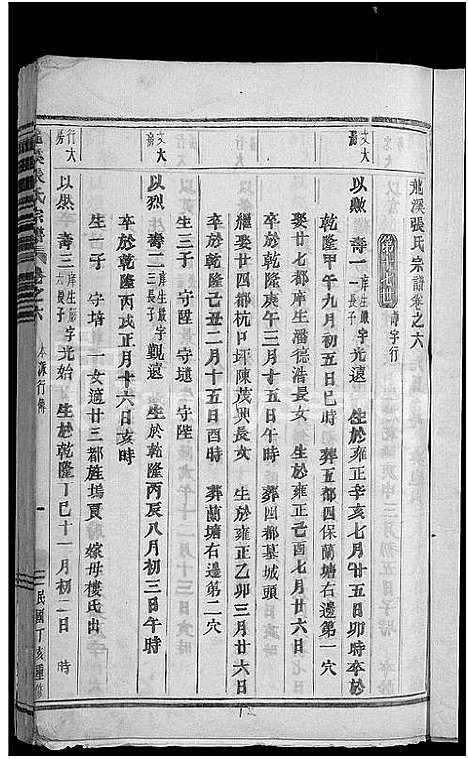 龍溪張氏宗譜卷之六
壽字行
文大房
以煦 壽一 庠生嚴長子 字光遠 生於雍正辛亥七月廿五日卯時卒於
乾隆甲午九月初五日巳時 葬五都四保蘭塘右邊第一穴
娶廿七都庠生潘德浩長女 生於雍正己酉七月廿六日
卒於乾隆庚午三月十五日午時 葬四都墓城頭
繼娶廿四都杭口坪陳茂興長女 生於雍正乙卯三月廿六日
卒於乾隆己丑二月十五日酉時 葬蘭塘右邊第二穴
生三子 守陞 守
文大房
以烈 壽二 庠生嚴三長子 字觀遠 生於乾隆丙辰八月初三日午時
卒於乾隆丙戌正月十六日亥時
生一子 守培 一女適廿三都旌塢賈 嫁母樓氏出
行大房
以炁 壽三 庠生嚴六長子 字光始 生於乾隆丁巳十一月初二日 時
龍溪張氏宗譜 卷之六 本派行傳 一 民國丁亥重修